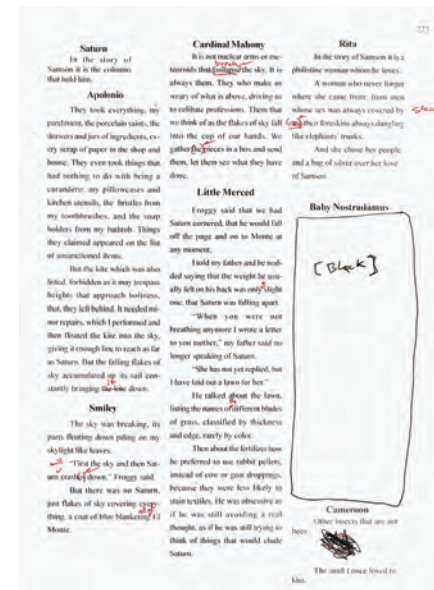 Saturn
In the story of
Samson it is the columns
that hold him.
Apolonio
They took everything, my
parchment, the porcelain saints, the
drawers and jars of ingredients, ev-
ery scrap of paper in the shop and
house. They even took things that
had nothing to do with being a
curandero: my pillowcases and
kitchen utensils, the bristles from
my toothbrushes, and the soap
holders from my bathtub. Things
they claimed appeared on the list
of unsanctioned items.
But the kite which was also
listed, forbidden as it may trespass
heights that approach holiness,
that, they left behind. It needed mi-
nor repairs, which I performed and
then floated the kite into the sky,
giving it enough line to reach as far
as Saturn. But the falling flakes of
sky accumulated on its sail con-
stantly bringing the kite down.
it
Smiley
The sky was breaking, its
parts floating down piling on my
skylight like leaves.
"First the sky and then Sat-
urn crashed down," Froggy said.
But there was no Saturn,
just flakes of sky covering every-
thing, a coat of blue blanketing El
Monte.
Cardinal Mahony
It is not nuclear arms or me-
teoroids that collapse the sky. It is
always them. They who make us
weary of what is above, driving us
to celibate professions. Them that
we think of as the flakes of sky fall
into the cup of our hands. We
gather the pieces in a box and send
them, let them see what they have
done.
Little Merced
Froggy said that we had
Saturn cornered, that he would fall
off the page and on to Monte at
any moment.
I told my father and he nod-
ded saying that the weight he usu-
ally felt on his back was only slight
one, that Saturn was falling apart.
"When you were not
breathing anymore I wrote a letter
to you mother," my father said no
longer speaking of Saturn.
"She has not yet replied, but
I have laid out a lawn for her."
He talked about the lawn,
listing the names of different blades
of grass, classified by thickness
and edge, rarely by color.
Then about the fertilizer how
he preferred to use rabbit pellets,
instead of cow or goat droppings,
because they were less likely to
stain textiles. He was obsessive as
if he was still avoiding a real
thought, as if he was still trying to
think of things that would elude
Saturn.
Rita
In the story of Samson it is a
philistine woman whom he loves.
A woman who never forgot
where she came from: from men
whose sex was always covered by
their foreskins always dangling
like elephants' trunks.
And she chose her people
and a bag of silver over her love
of Samson.
Baby Nostradamus
[Black]
Cameron
Other insects that are not
bees:
The snail I once loved to
kiss.